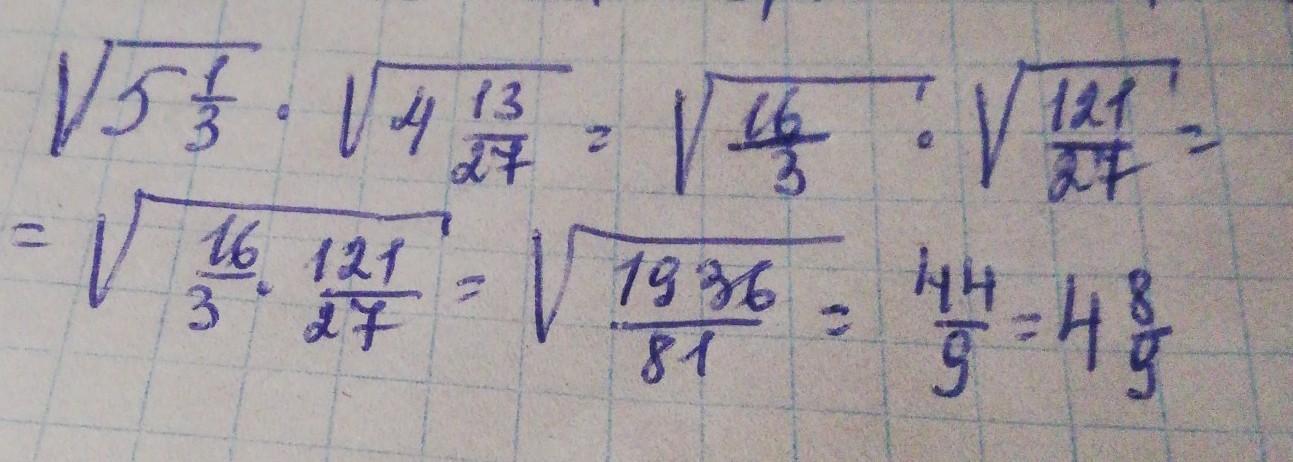 √5 1/3 · √4 13/27 = √16/3 · √121/27 =
= √16/3 · 121/27 = √1936/81 = 44/9 = 4 8/9